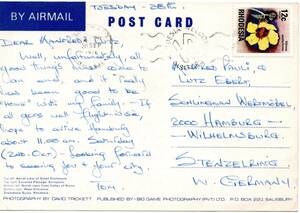 BY AIRMAIL
TUESDAY - 28TH.
POST CARD
12c
RHODESIA
Dear Manfred & Lutz,
Well, unfortunately, all
good things must come to
an end and I really
has been good to be
"home" with my family - If
all goes well flight-wise
hope to arrive Hamburg
about 11.00 am. Saturday
(2nd. Oct.) Looking forward
to seeing you & your city.
Tom.
Manfred Pauli &
Lutz Ebert,
2000 Hamburg -
Wilhelmsburg,
Stenzelring
W. Germany
PHOTOGRAPHY BY DAVID TRICKETT
PUBLISHED BY BIG GAME PHOTOGRAPHY (PVT) LTD. P.O. BOX 2251, SALISBURY